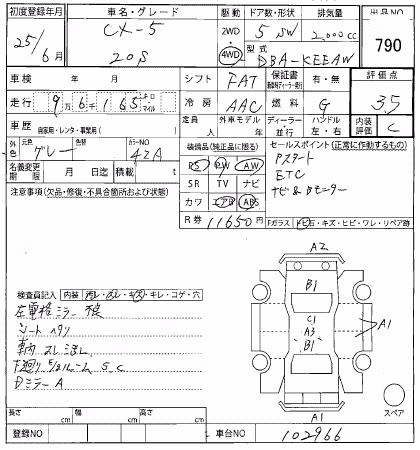 初度登録年月 車名・グレード 駆動 ドア数・形状 排気量 出品NO
25年 6月 CX-5 20S 2WD 4WD 5 SW 2,000cc 790
型式 DBA-KEEAW
車検 年 月 シフト FAT 保証書 有・無 評価点
走行 9万6千165 キロ マイル 冷房 AAC 燃料 G 3.5
車歴 自家用・レンタ・事業用( ) 定員 人 外車モデル 年 ディーラー 並行 ハンドル 左・右 内装評価 C
外色 元色 グレー 色替 カラーNO 42A 装備品(純正品に限る) セールスポイント(正常に作動するもの)
名義変更期限 月 日迄 積載 t PS PW AW Pスタート
注意事項(欠品・修復・不具合箇所および状態) SR TV ナビ ETC
カワ エアB ABS ナビ&Bモニター
R券 11650円 Fガラス トビ石・キズ・ヒビ・ワレ・リペア跡
A2
B1
検査員記入 内装 汚レ・スレ・キズ・キレ・コゲ・穴
C1
左電格ミラー不良 A3
シート ヘタリ B1 A1
車内 スレ 汚レ
下廻り S.C
Dミラー A
スペア
長さ cm 幅 cm 高さ cm A1
登録NO 車台NO 102966